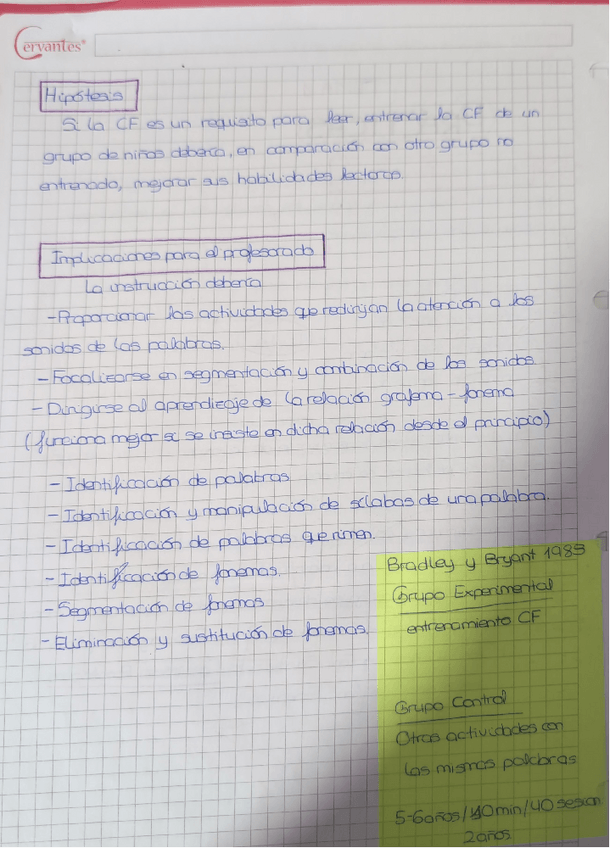 Cervantes
Hipótesis
Si la CF es un requisito para leer, entrenar la CF de un
grupo de niños debería, en comparación con otro grupo no
entrenado, mejorar sus habilidades lectoras.
Implicaciones para el profesorado
La instrucción debería
-Proporcionar las actividades que redirijan la atención a los
sonidos de las palabras.
- Focalizarse en segmentación y combinación de los sonidos
- Dirigirse al aprendizaje de la relación grafema-fonema
(funciona mejor si se insiste en dicha relación desde el principio)
- Identificación de palabras
- Identificación y manipulación de sílabas de una palabra.
- Identificación de palabras que rimen.
- Identificación de fonemas.
- Segmentación de fonemas
- Eliminación y sustitución de fonemas.
Bradley y Bryant 1983
Grupo Experimental
entrenamiento CF
Grupo Control
Otras actividades con
las mismas palabras
5-6años/10min/40 sesion
2años